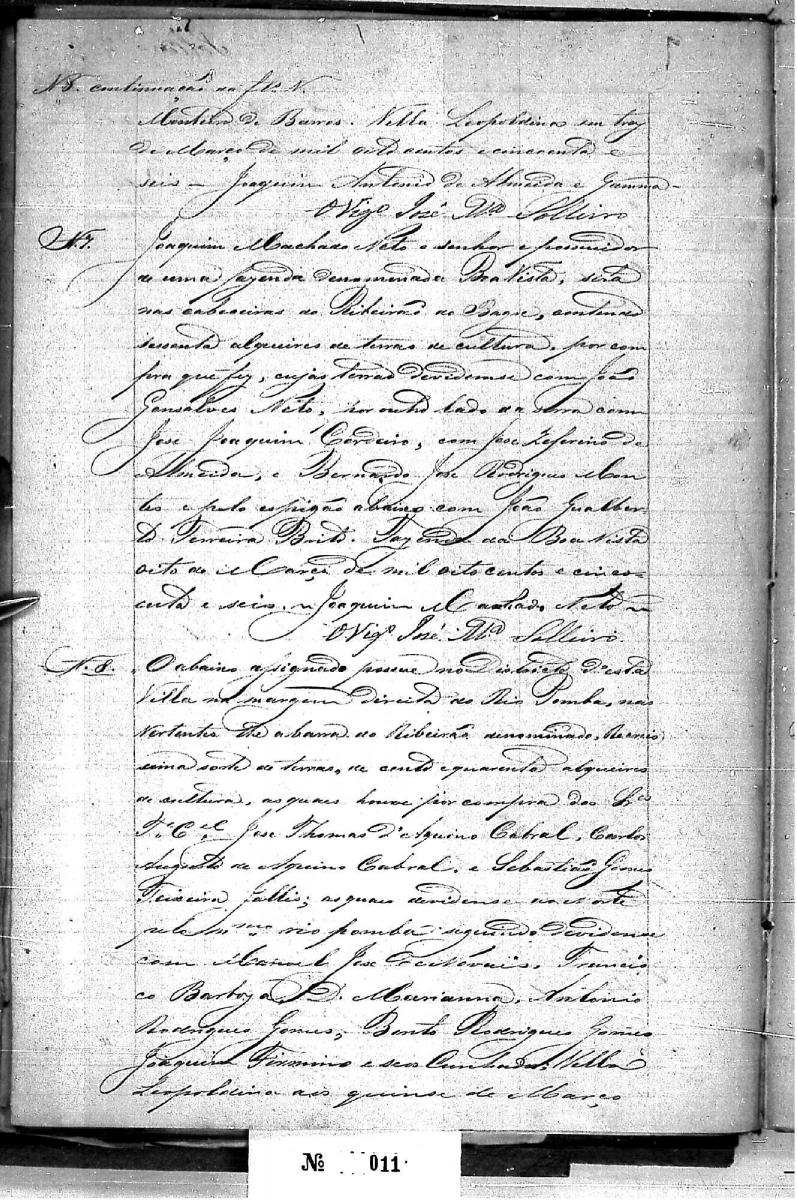 continuação da fl.
Monteiro de Barros. Villa Leopoldina em trez
de Março de mil oitocentos e cincoenta e
seis – Joaquim Antonio de Almeida e Gamma –
O Vigº José Mª Solleiro
N.7. Joaquim Machado Neto e senhor e possuidor
de uma fazenda denomenada Boa Vista, sita
nas cabeceiras do Ribeirão do Bagre, contendo
sessenta alqueires de terras de cultura, por com
pra que fez, cujas terras devidemse com João
Gonsalves Neto, por outro lado da serra com
Jose Joaquim Cordeiro, com Jose Zeferino de
Almeida, e Bernardo Jose Rodrigues Mon
tes e pelo espigão abaixo com João Gualber
to Ferreira Brito. Fazenda da Boa Vista
oito de Março de mil oitocentos e cinco-
enta e seis. Joaquim Machado Neto
O Vigº José Mª Solleiro.
N.8. O abaixo assignado possue no Districto d'esta
Villa na margem direita do Rio Pomba, nas
Vertentes the a barra do Ribeirão denominado, Recreio
uma sorte de terras, de cento e quarenta alqueires
de cultura, as quaes houve por compra dos Srºs
Tᵉ Cᵉˡ Jose Thomas d'Aquino Cabral, Carlos
Augusto de Aquino Cabral, e Sebastião Gomes
Teixeira Jallis; as quaes devidense ao Norte
pelo mmo rio pomba seguindo devidense
com Manoel Jose de Novais, Francis
co Barboza, D. Marianna, Antonio
Rodrigues Gomes, Bento Rodrigues Gomes
Joaquim Firmino e seos Cunhados. Villa
Leopoldina aos quinse de Março
Nº 011